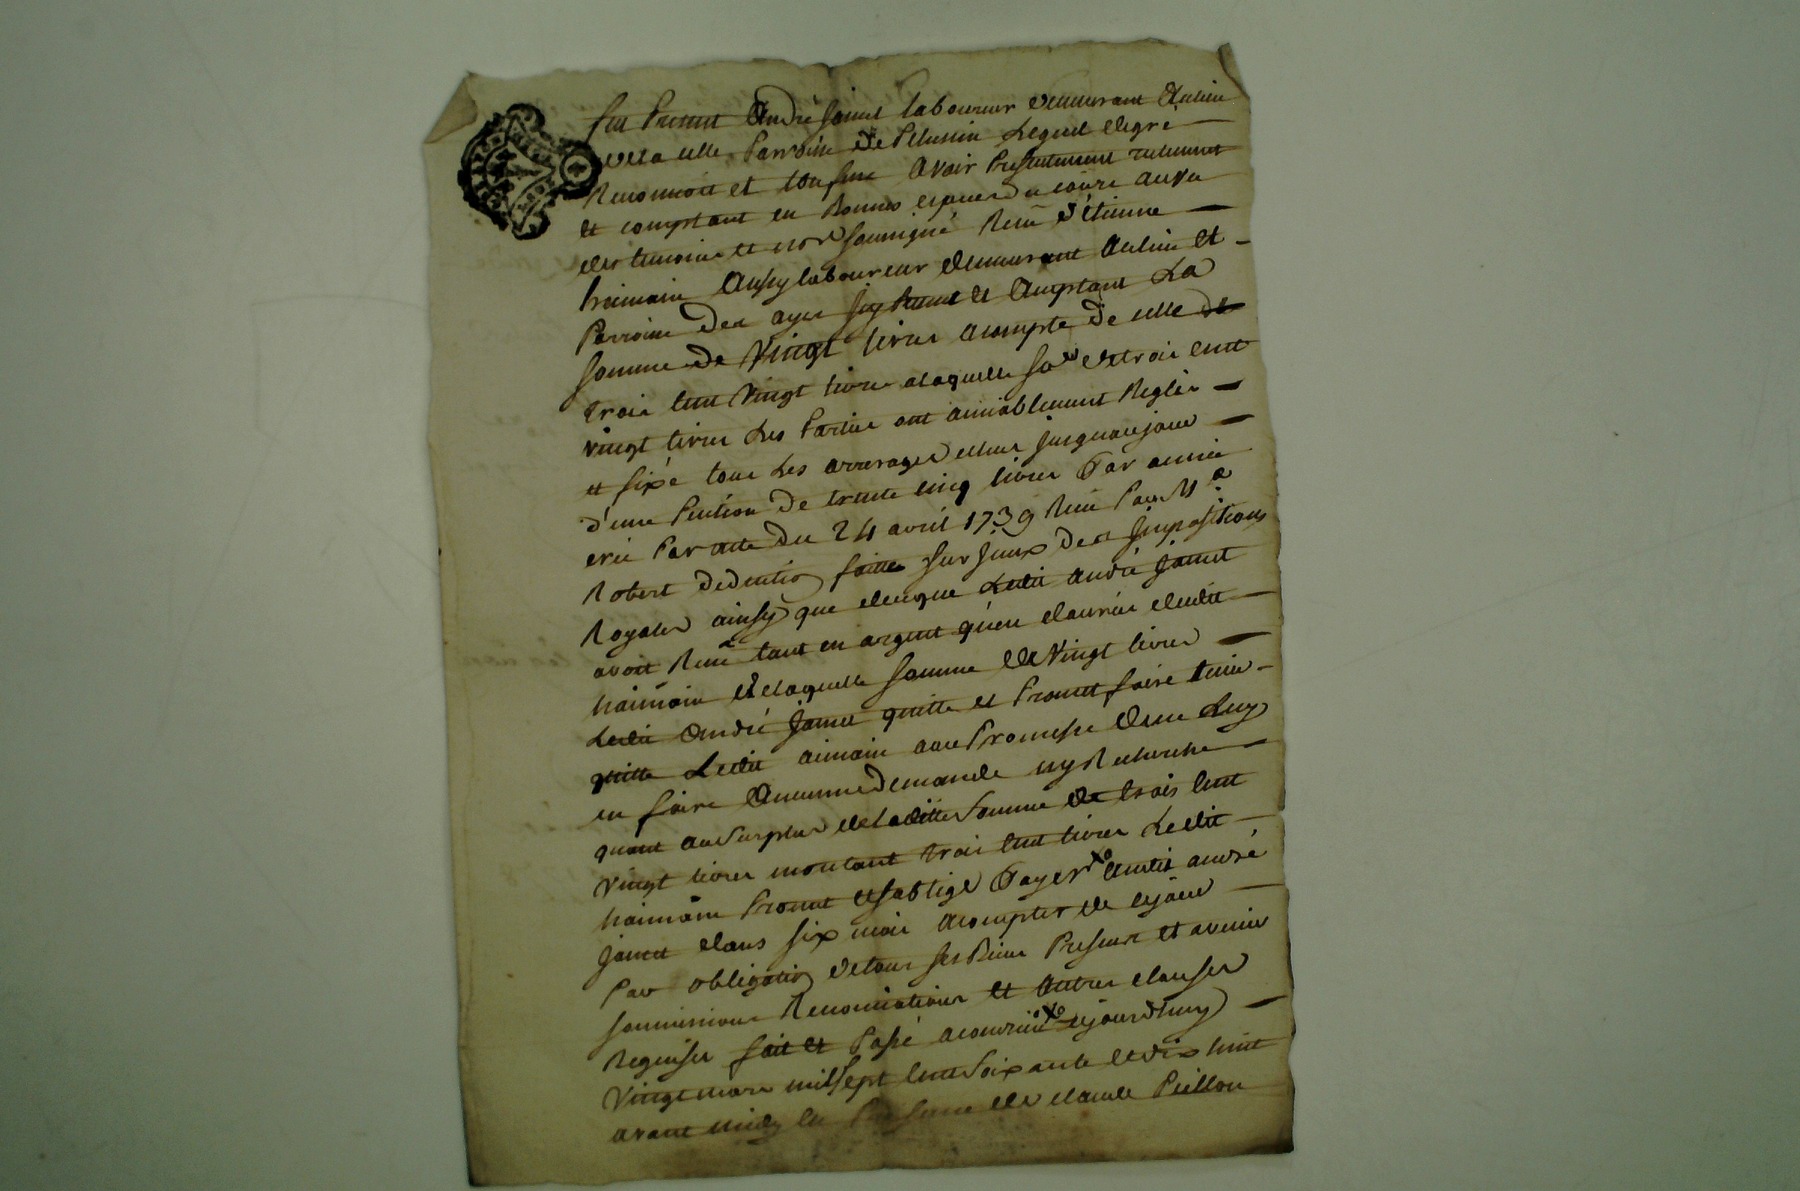 fut Present André Jamet laboureur demeurant Aulieu
de la celle Parroisse de Pelussin Lequel degré
Reconnoit et confesse Avoir Presentement reellement
et comptant en Bonnes especes du cours au vu
des temoins et no.re soussigné Receu d'étienne
haimain Aussy laboureur demeurant Aulieu et
Parroisse des ayes icy Present et Acceptant La
somme de Vingt livres acompte de celle de
trois Cent Vingt livres a laquelle so.e de trois Cent
vingt livres Les Parties ont amiablement Reglés
et fixé tous Les arrerages echus jusqu'au jour
d'une Pention de trente cinq livres Par année
crée Par acte du 24 avril 1739 Receu Par M.e
Robert deduction faitte sur jceux des Jmpositions
Royales ainsy que de ce que Ledit André Jamet
avoit Receu tant en argent qu'en danrées dudit
haimain de laquelle somme de Vingt livres
Ledit André Jamet quitte et Promet faire tenir
quitte Ledit aimain avec Promesse de ne Luy
en faire Aucunne Demande ny Recherche
quant au Surplus de Laditte Somme de trois Cent
Vingt livres montant trois Cent livres Ledit
haimain Promet et soblige Payer Audit André
Jamet dans six mois acompter de ce jour
Par obligation de tous ses Biens Presents et avenir
soumissions Renonciations et Autres clauses
Requises fait et Passé a cejourdhuy
Vingt mars mil sept Cent Soixante et dix huit
avant midy En Presence de claude Peillon